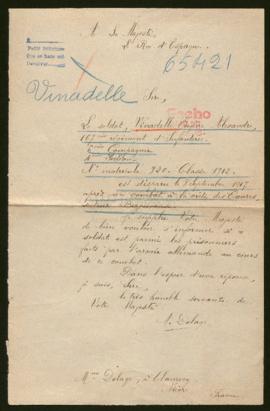 A Sa Majesté
Le Roi d'Espagne.
65421
Vinadelle
Sire,
Le soldat, Vinadelle Alexandre,
167me régiment d'Infanterie
Compagnie
à Toulon
No matricule 920. Classe 1912.
est disparu le 8 septembre 1917
après un combat à la
Je supplie Votre Majesté
de bien vouloir s'informer si ce
soldat est parmi les prisonniers
faits par l'armée allemande au cours
de ce combat.
Dans l'espoir d'une réponse,
je suis, Sire,
la très humble servante de
Votre Majesté
M. Delage
Mme Delage, à Clamecy
Nièvre
France